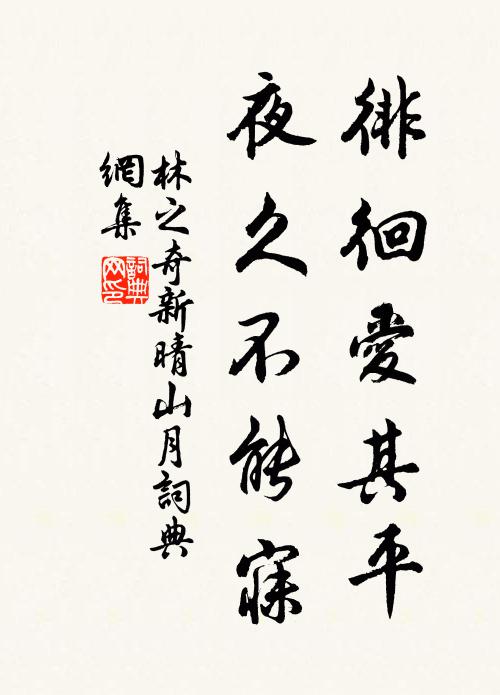 徘徊愛其平
夜久不能寐
林之奇新晴山月詞典
網集
詞典
网印